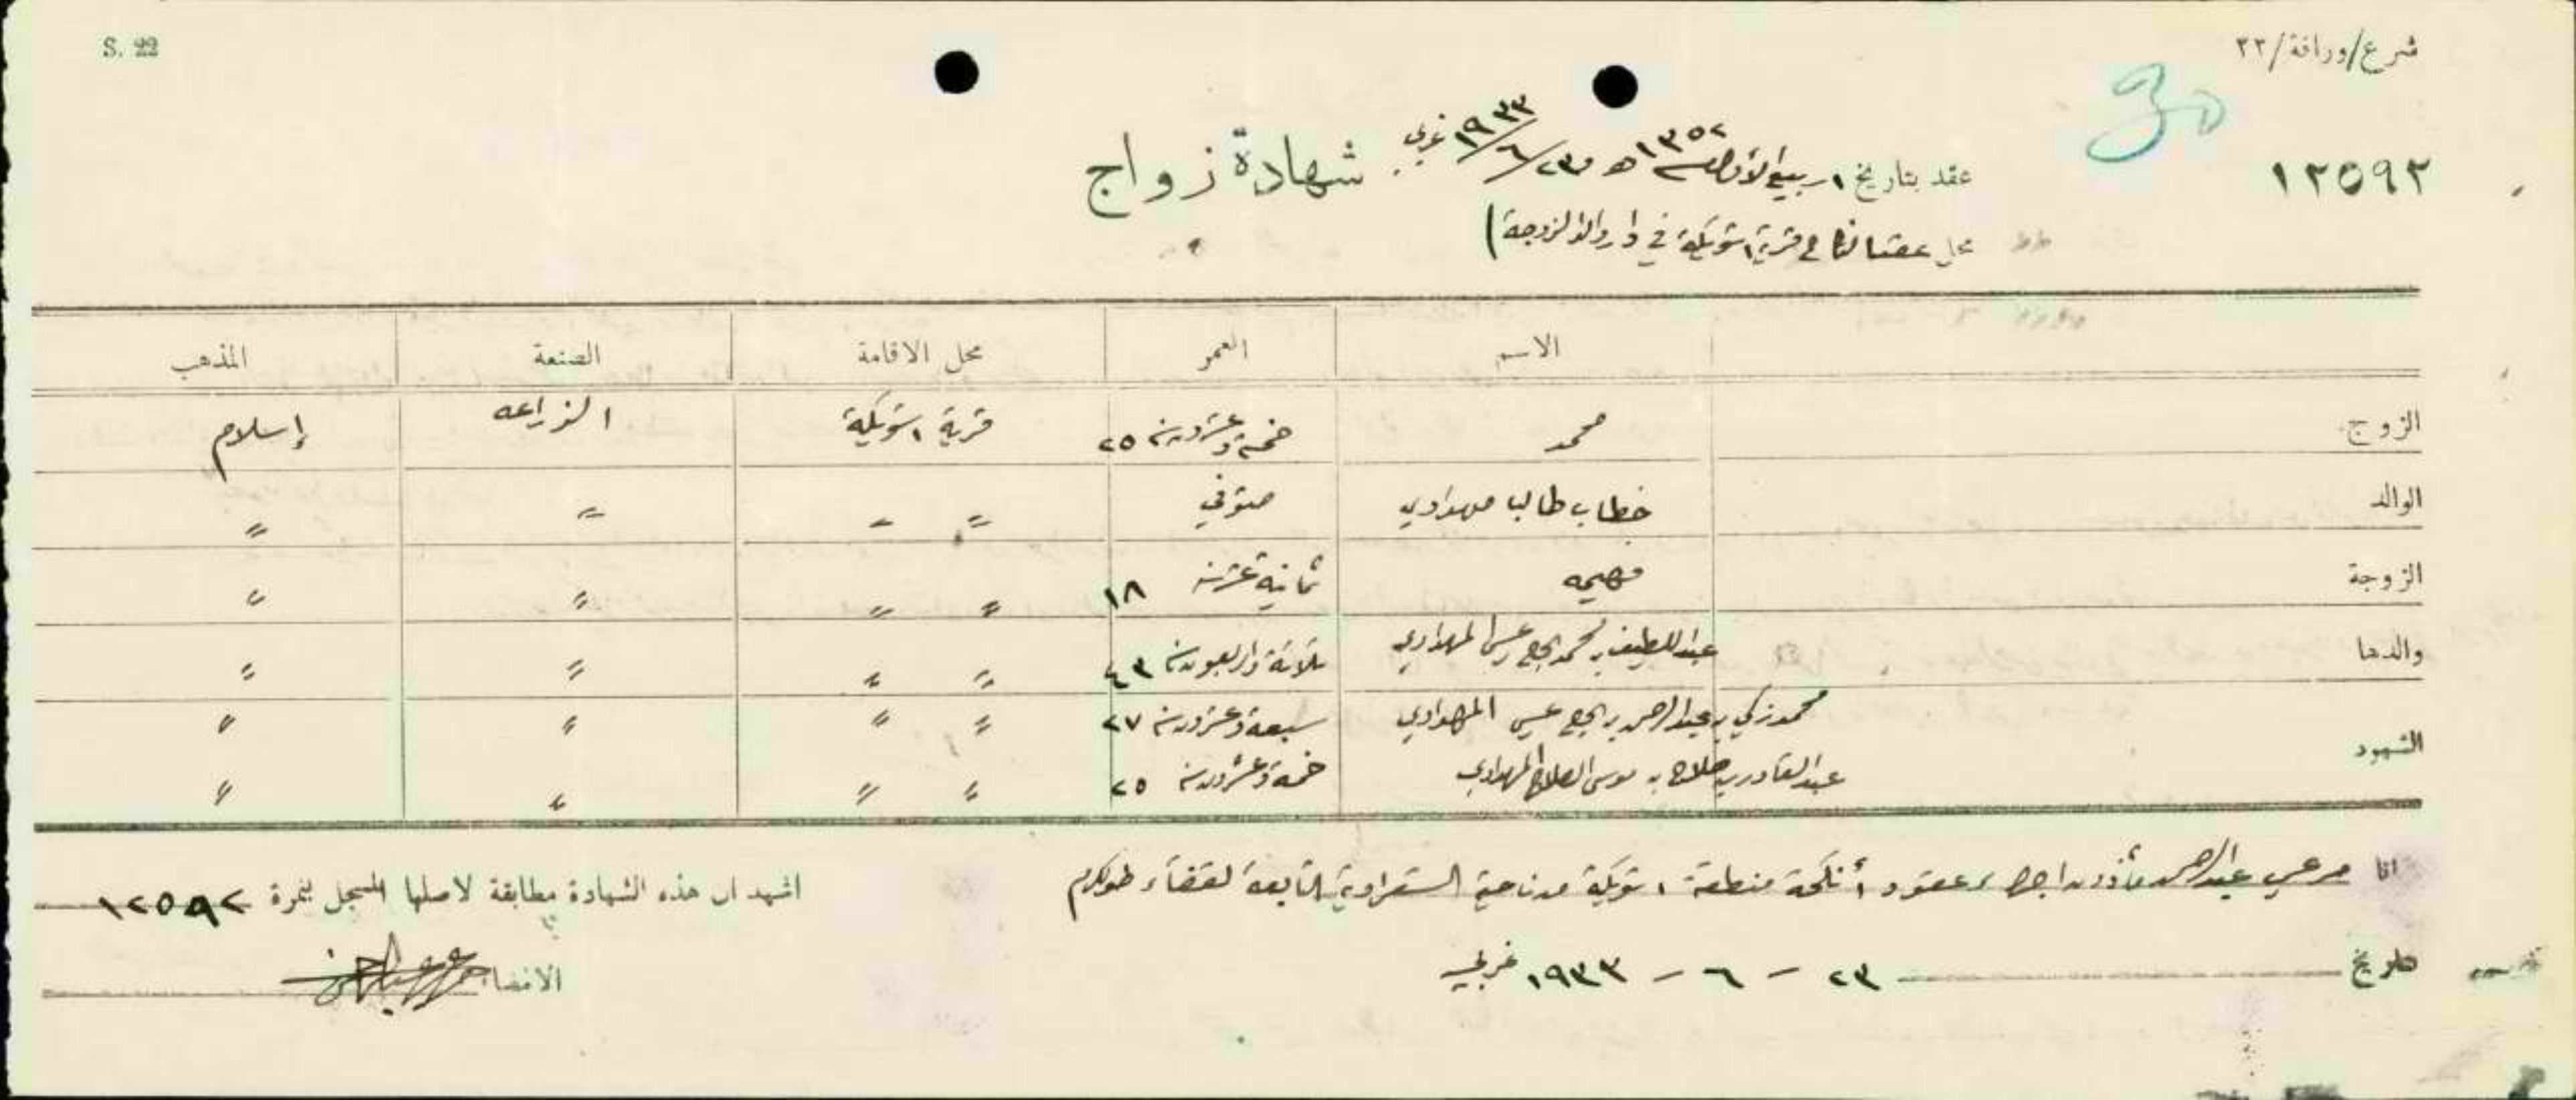 شرع/ورافة/٢٢
S. 22
30
١٢٥٩٢
عقد بتاريخ ١ ربيع الأول سنة ١٣٥٢ هـ و ٢٣/٦/١٩٣٣ غربي
شهادة زواج
محل عقد النكاح قرية اشويكة في دار والد الزوجة)
الاسم العمر محل الاقامة الصنعة المذهب
الزوج محمد خمسة وعشرون سنة ٢٥ قرية اشويكة الزراعه إسلام
الوالد خطاب طالب مهداوي متوفي 〃 〃 〃 〃
الزوجة فهيمه ثمانية عشر سنة ١٨ 〃 〃 〃 〃
والدها عبداللطيف بن محمد الحج عيسى المهداوي ثلاثة واربعون سنة ٤٣ 〃 〃 〃 〃
الشهود محمد زكي بن عبدالرحمن بن الحج عيسى المهداوي سبعة وعشرون سنة ٢٧ 〃 〃 〃 〃
عبدالقادر بن صلاح بن موسى الصلاح المهداوي خمسة وعشرون سنة ٢٥ 〃 〃 〃 〃
انا مرعي عبدالرحمن مأذون اجراء عقود أنكحة منطقة اشويكة من ناحية الشعراوية التابعة لقضاء طولكرم
اشهد ان هذه الشهادة مطابقة لاصلها المسجل بنمرة ١٢٥٩٢
تاريخ ٢٣ - ٦ - ١٩٣٣ غربي
الامضاء